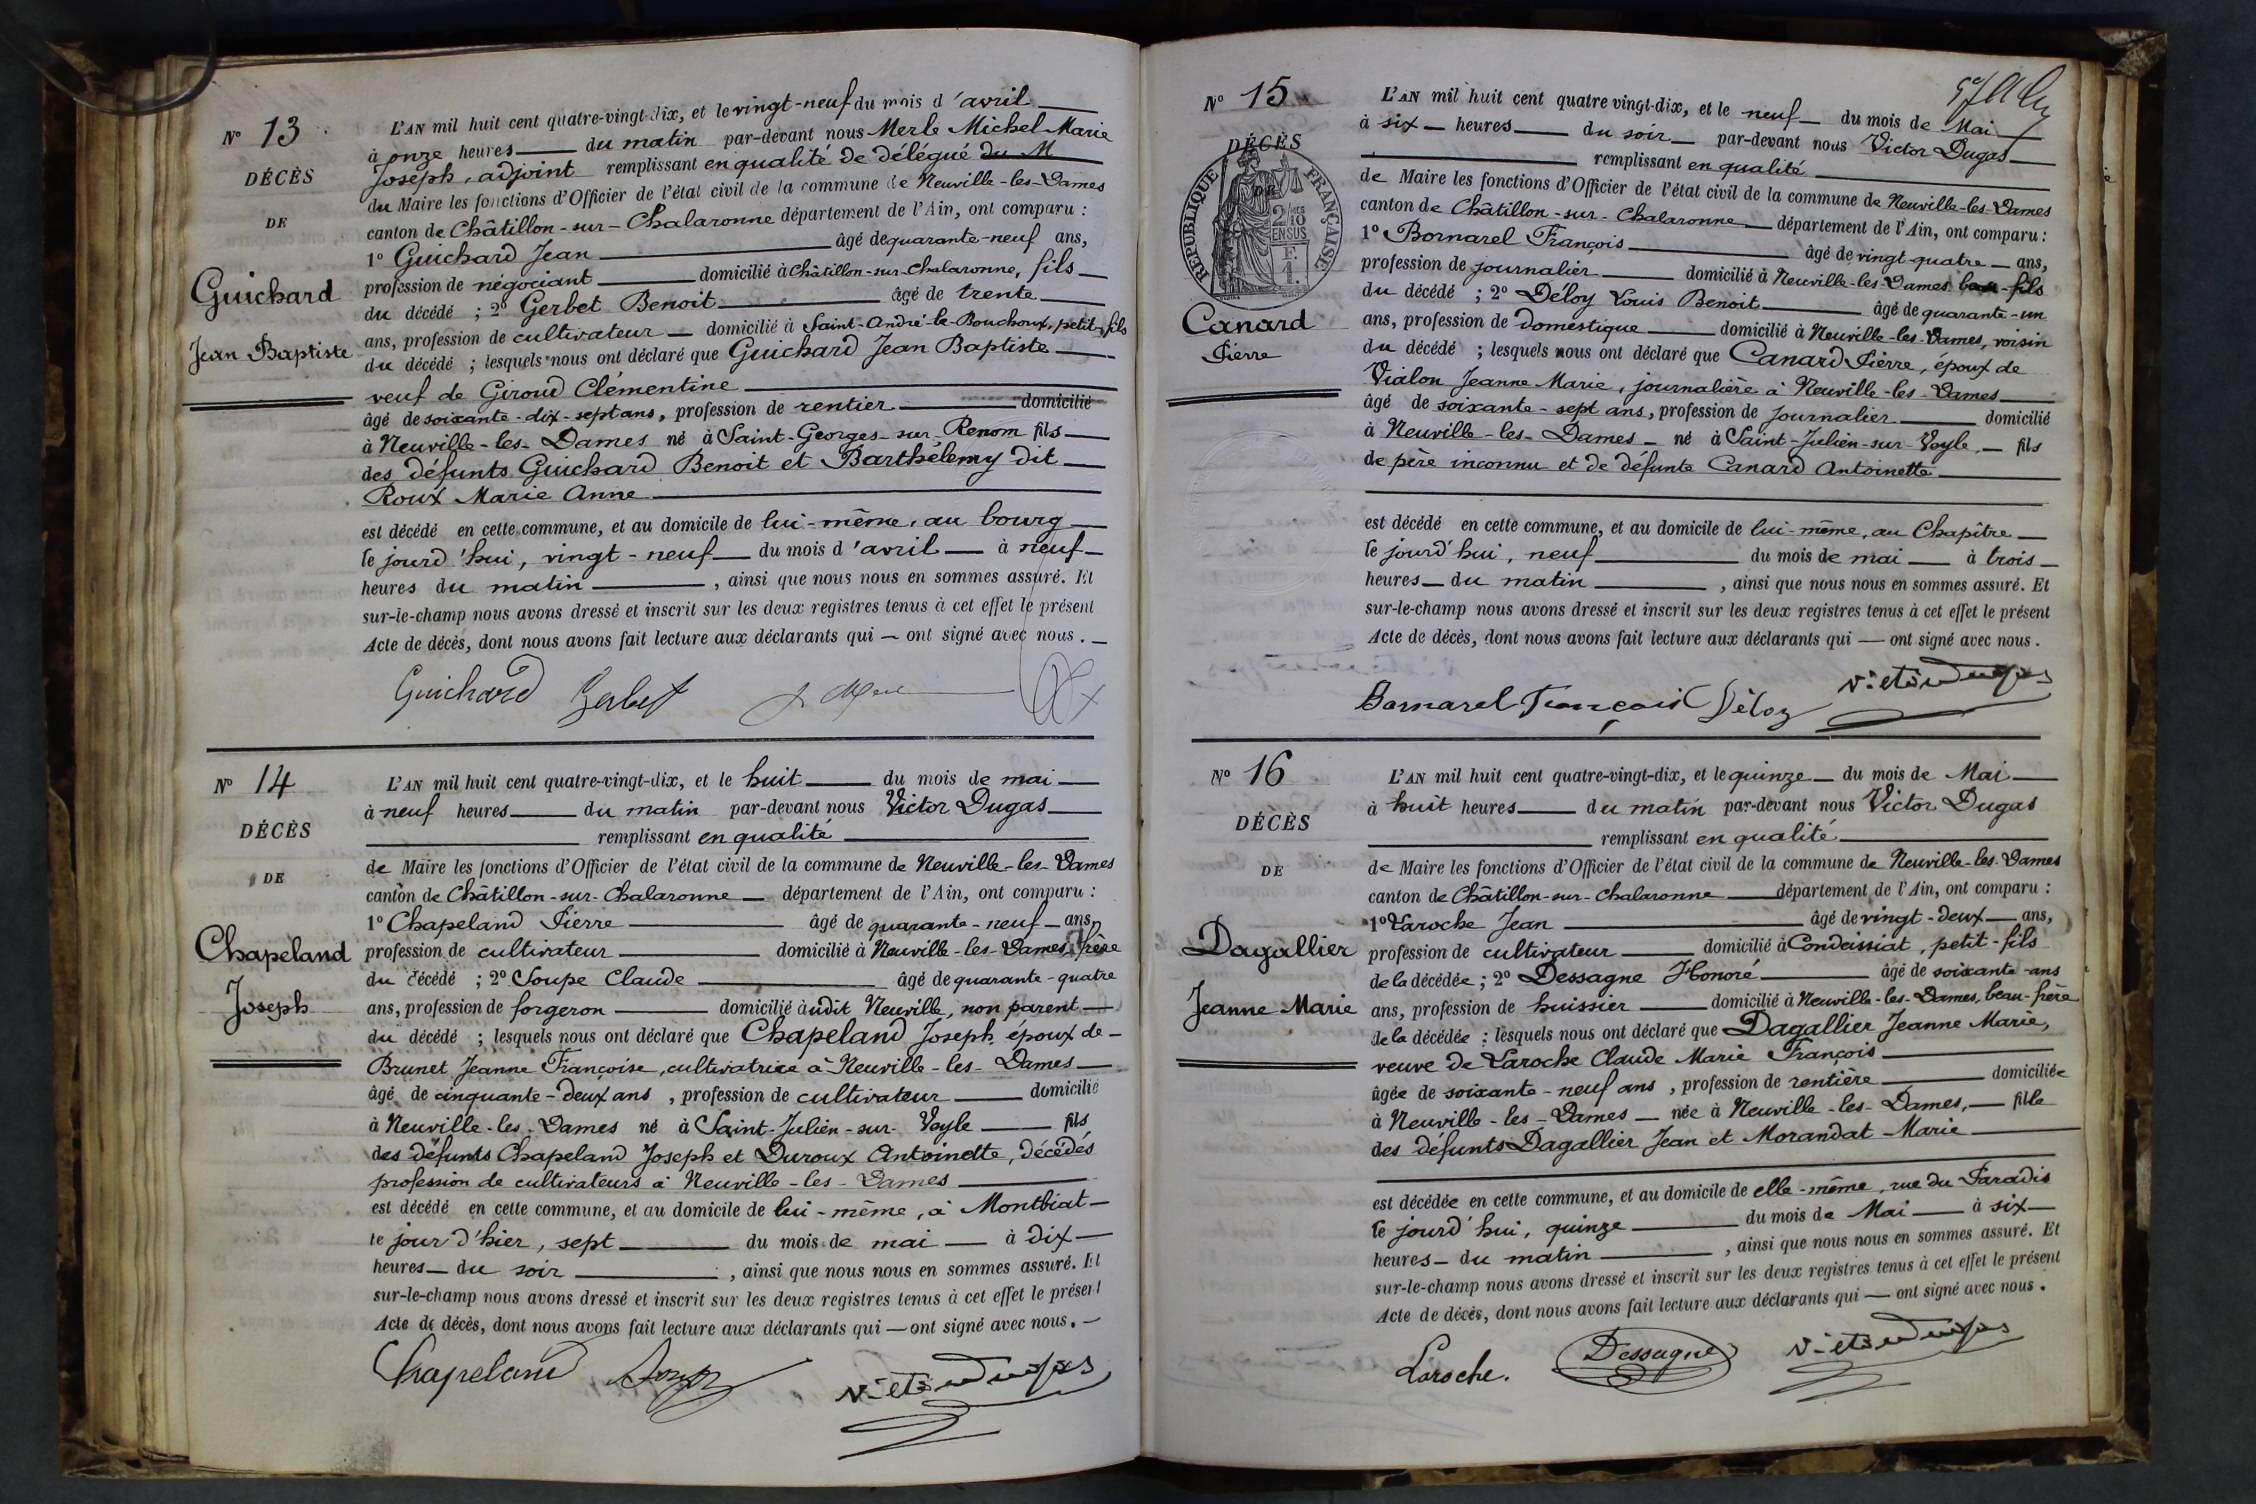 N° 13
DÉCÈS
DE
Guichard
Jean Baptiste
L'AN mil huit cent quatre-vingt-dix, et le vingt-neuf du mois d'avril
à onze heures du matin par-devant nous Merle Michel Marie
Joseph, adjoint remplissant en qualité de délégué du M
du Maire les fonctions d'Officier de l'état civil de la commune de Neuville-les-Dames
canton de Châtillon-sur-Chalaronne département de l'Ain, ont comparu :
1° Guichard Jean âgé de quarante-neuf ans,
profession de négociant domicilié à Châtillon-sur-Chalaronne, fils
du décédé ; 2° Gerbet Benoit âgé de trente
ans, profession de cultivateur domicilié à Saint-André-le-Bouchoux, petit-fils
du décédé ; lesquels nous ont déclaré que Guichard Jean Baptiste
veuf de Giroud Clémentine
âgé de soixante-dix-sept ans, profession de rentier domicilié
à Neuville-les-Dames né à Saint-Georges-sur-Renom fils
des défunts Guichard Benoit et Barthélemy dit
Roux Marie Anne
est décédé en cette commune, et au domicile de lui-même, au bourg
le jourd'hui, vingt-neuf du mois d'avril à neuf
heures du matin, ainsi que nous nous en sommes assuré. Et
sur-le-champ nous avons dressé et inscrit sur les deux registres tenus à cet effet le présent
Acte de décès, dont nous avons fait lecture aux déclarants qui — ont signé avec nous.
Guichard Gerbet
N° 14
DÉCÈS
DE
Chapeland
Joseph
L'AN mil huit cent quatre-vingt-dix, et le huit du mois de mai
à neuf heures du matin par-devant nous Victor Dugas
remplissant en qualité
de Maire les fonctions d'Officier de l'état civil de la commune de Neuville-les-Dames
canton de Châtillon-sur-Chalaronne département de l'Ain, ont comparu :
1° Chapeland Pierre âgé de quarante-neuf ans,
profession de cultivateur domicilié à Neuville-les-Dames, frère
du décédé ; 2° Soupe Claude âgé de quarante-quatre
ans, profession de forgeron domicilié audit Neuville, non parent
du décédé ; lesquels nous ont déclaré que Chapeland Joseph, époux de
Brunet Jeanne Françoise, cultivatrice à Neuville-les-Dames
âgé de cinquante-deux ans, profession de cultivateur domicilié
à Neuville-les-Dames né à Saint-Julien-sur-Veyle fils
des défunts Chapeland Joseph et Duroux Antoinette, décédés
profession de cultivateurs à Neuville-les-Dames
est décédé en cette commune, et au domicile de lui-même, à Montbiat
le jour d'hier, sept du mois de mai à dix
heures du soir, ainsi que nous nous en sommes assuré. Et
sur-le-champ nous avons dressé et inscrit sur les deux registres tenus à cet effet le présent
Acte de décès, dont nous avons fait lecture aux déclarants qui — ont signé avec nous.
Chapeland Soupe Victor Dugas
N° 15
DÉCÈS
DE
RÉPUBLIQUE FRANÇAISE
2/10 EN SUS
Canard
Pierre
L'AN mil huit cent quatre-vingt-dix, et le neuf du mois de Mai
à six heures du soir par-devant nous Victor Dugas
remplissant en qualité
de Maire les fonctions d'Officier de l'état civil de la commune de Neuville-les-Dames
canton de Châtillon-sur-Chalaronne département de l'Ain, ont comparu :
1° Bornarel François âgé de vingt-quatre ans,
profession de journalier domicilié à Neuville-les-Dames, beau-fils
du décédé ; 2° Déloy Louis Benoit âgé de quarante-un
ans, profession de domestique domicilié à Neuville-les-Dames, voisin
du décédé ; lesquels nous ont déclaré que Canard Pierre, époux de
Vialon Jeanne Marie, journalière à Neuville-les-Dames
âgé de soixante-sept ans, profession de journalier domicilié
à Neuville-les-Dames né à Saint-Julien-sur-Veyle, fils
de père inconnu et de défunte Canard Antoinette
est décédé en cette commune, et au domicile de lui-même, au Chapître
le jourd'hui, neuf du mois de mai à trois
heures du matin, ainsi que nous nous en sommes assuré. Et
sur-le-champ nous avons dressé et inscrit sur les deux registres tenus à cet effet le présent
Acte de décès, dont nous avons fait lecture aux déclarants qui — ont signé avec nous.
Bornarel François Déloy Victor Dugas
N° 16
DÉCÈS
DE
Dagallier
Jeanne Marie
L'AN mil huit cent quatre-vingt-dix, et le quinze du mois de Mai
à huit heures du matin par-devant nous Victor Dugas
remplissant en qualité
de Maire les fonctions d'Officier de l'état civil de la commune de Neuville-les-Dames
canton de Châtillon-sur-Chalaronne département de l'Ain, ont comparu :
1° Laroche Jean âgé de vingt-deux ans,
profession de cultivateur domicilié à Condeissiat, petit-fils
de la décédée ; 2° Dessagne Honoré âgé de soixante ans
ans, profession de huissier domicilié à Neuville-les-Dames, beau-frère
de la décédée ; lesquels nous ont déclaré que Dagallier Jeanne Marie,
veuve de Laroche Claude Marie François
âgée de soixante-neuf ans, profession de rentière domiciliée
à Neuville-les-Dames née à Neuville-les-Dames, fille
des défunts Dagallier Jean et Morandat Marie
est décédée en cette commune, et au domicile de elle-même, rue du Paradis
le jourd'hui, quinze du mois de Mai à six
heures du matin, ainsi que nous nous en sommes assuré. Et
sur-le-champ nous avons dressé et inscrit sur les deux registres tenus à cet effet le présent
Acte de décès, dont nous avons fait lecture aux déclarants qui — ont signé avec nous.
Laroche. Dessagne Victor Dugas